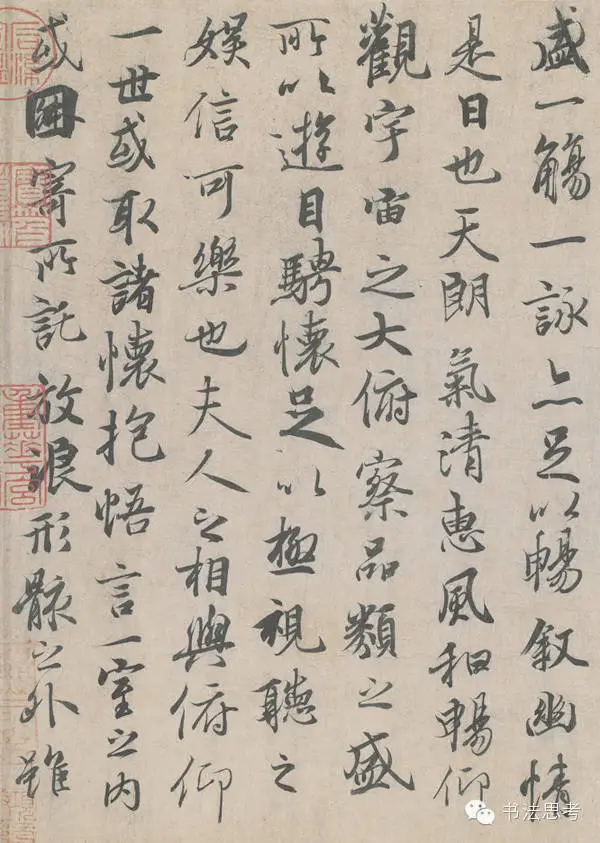 盛一觴一詠亦足以暢叙幽情
是日也天朗氣清惠風和暢仰
觀宇宙之大俯察品類之盛
所以遊目騁懷足以極視聽之
娛信可樂也夫人之相與俯仰
一世或取諸懷抱悟言一室之內
或因寄所託放浪形骸之外雖
书法思考